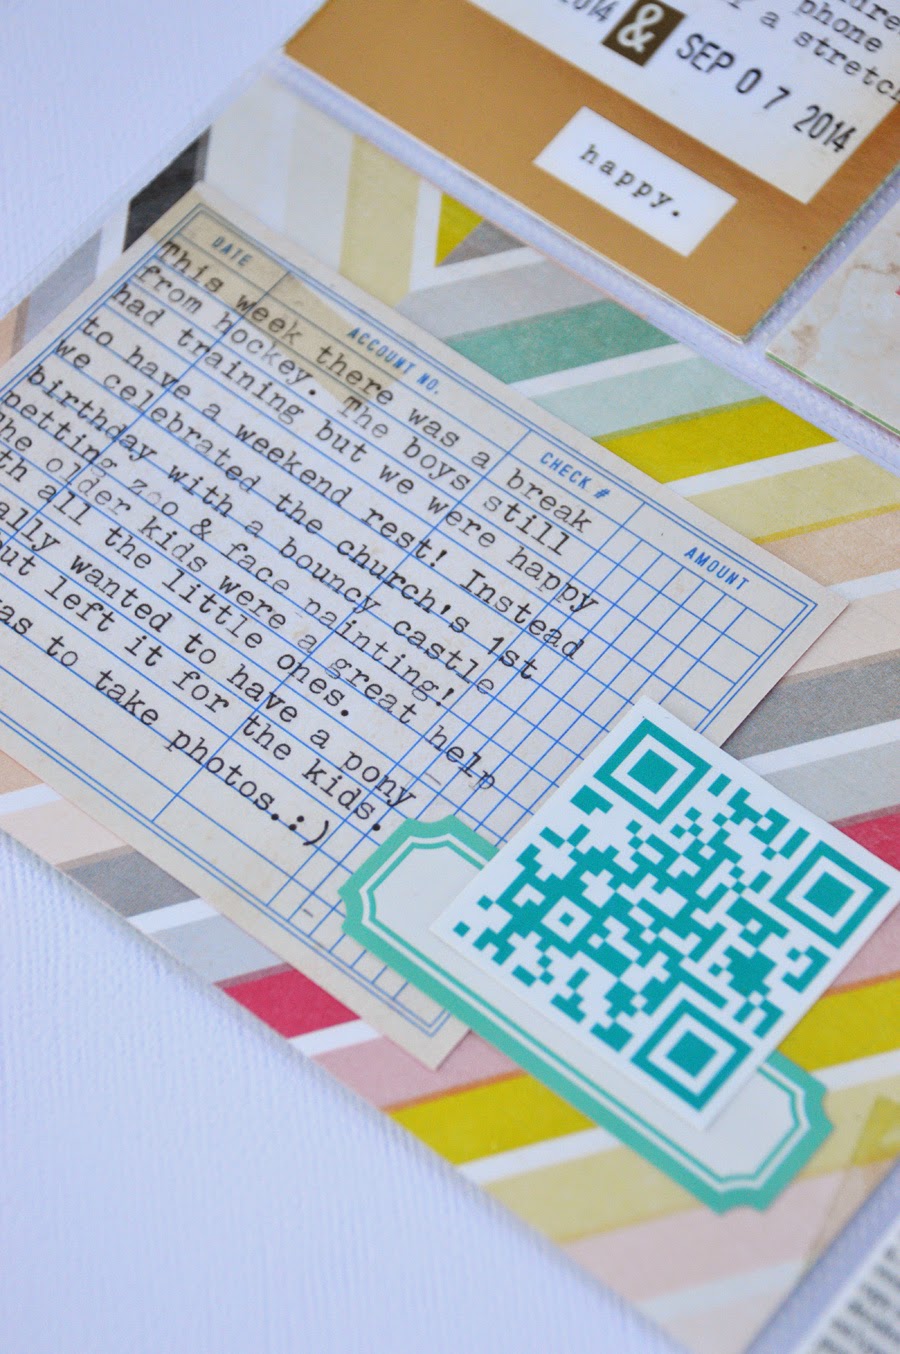 phone
a stretch
2014 & SEP 07 2014
happy.
DATE
ACCOUNT NO.
CHECK #
AMOUNT
This week there was a break
from hockey. The boys still
had training but we were happy
to have a weekend rest! Instead
we celebrated the church's 1st
birthday with a bouncy castle
petting zoo & face painting!
he older kids were a great help
th all the little ones.
ally wanted to have a pony
ut left it for the kids.
as to take photos..:)